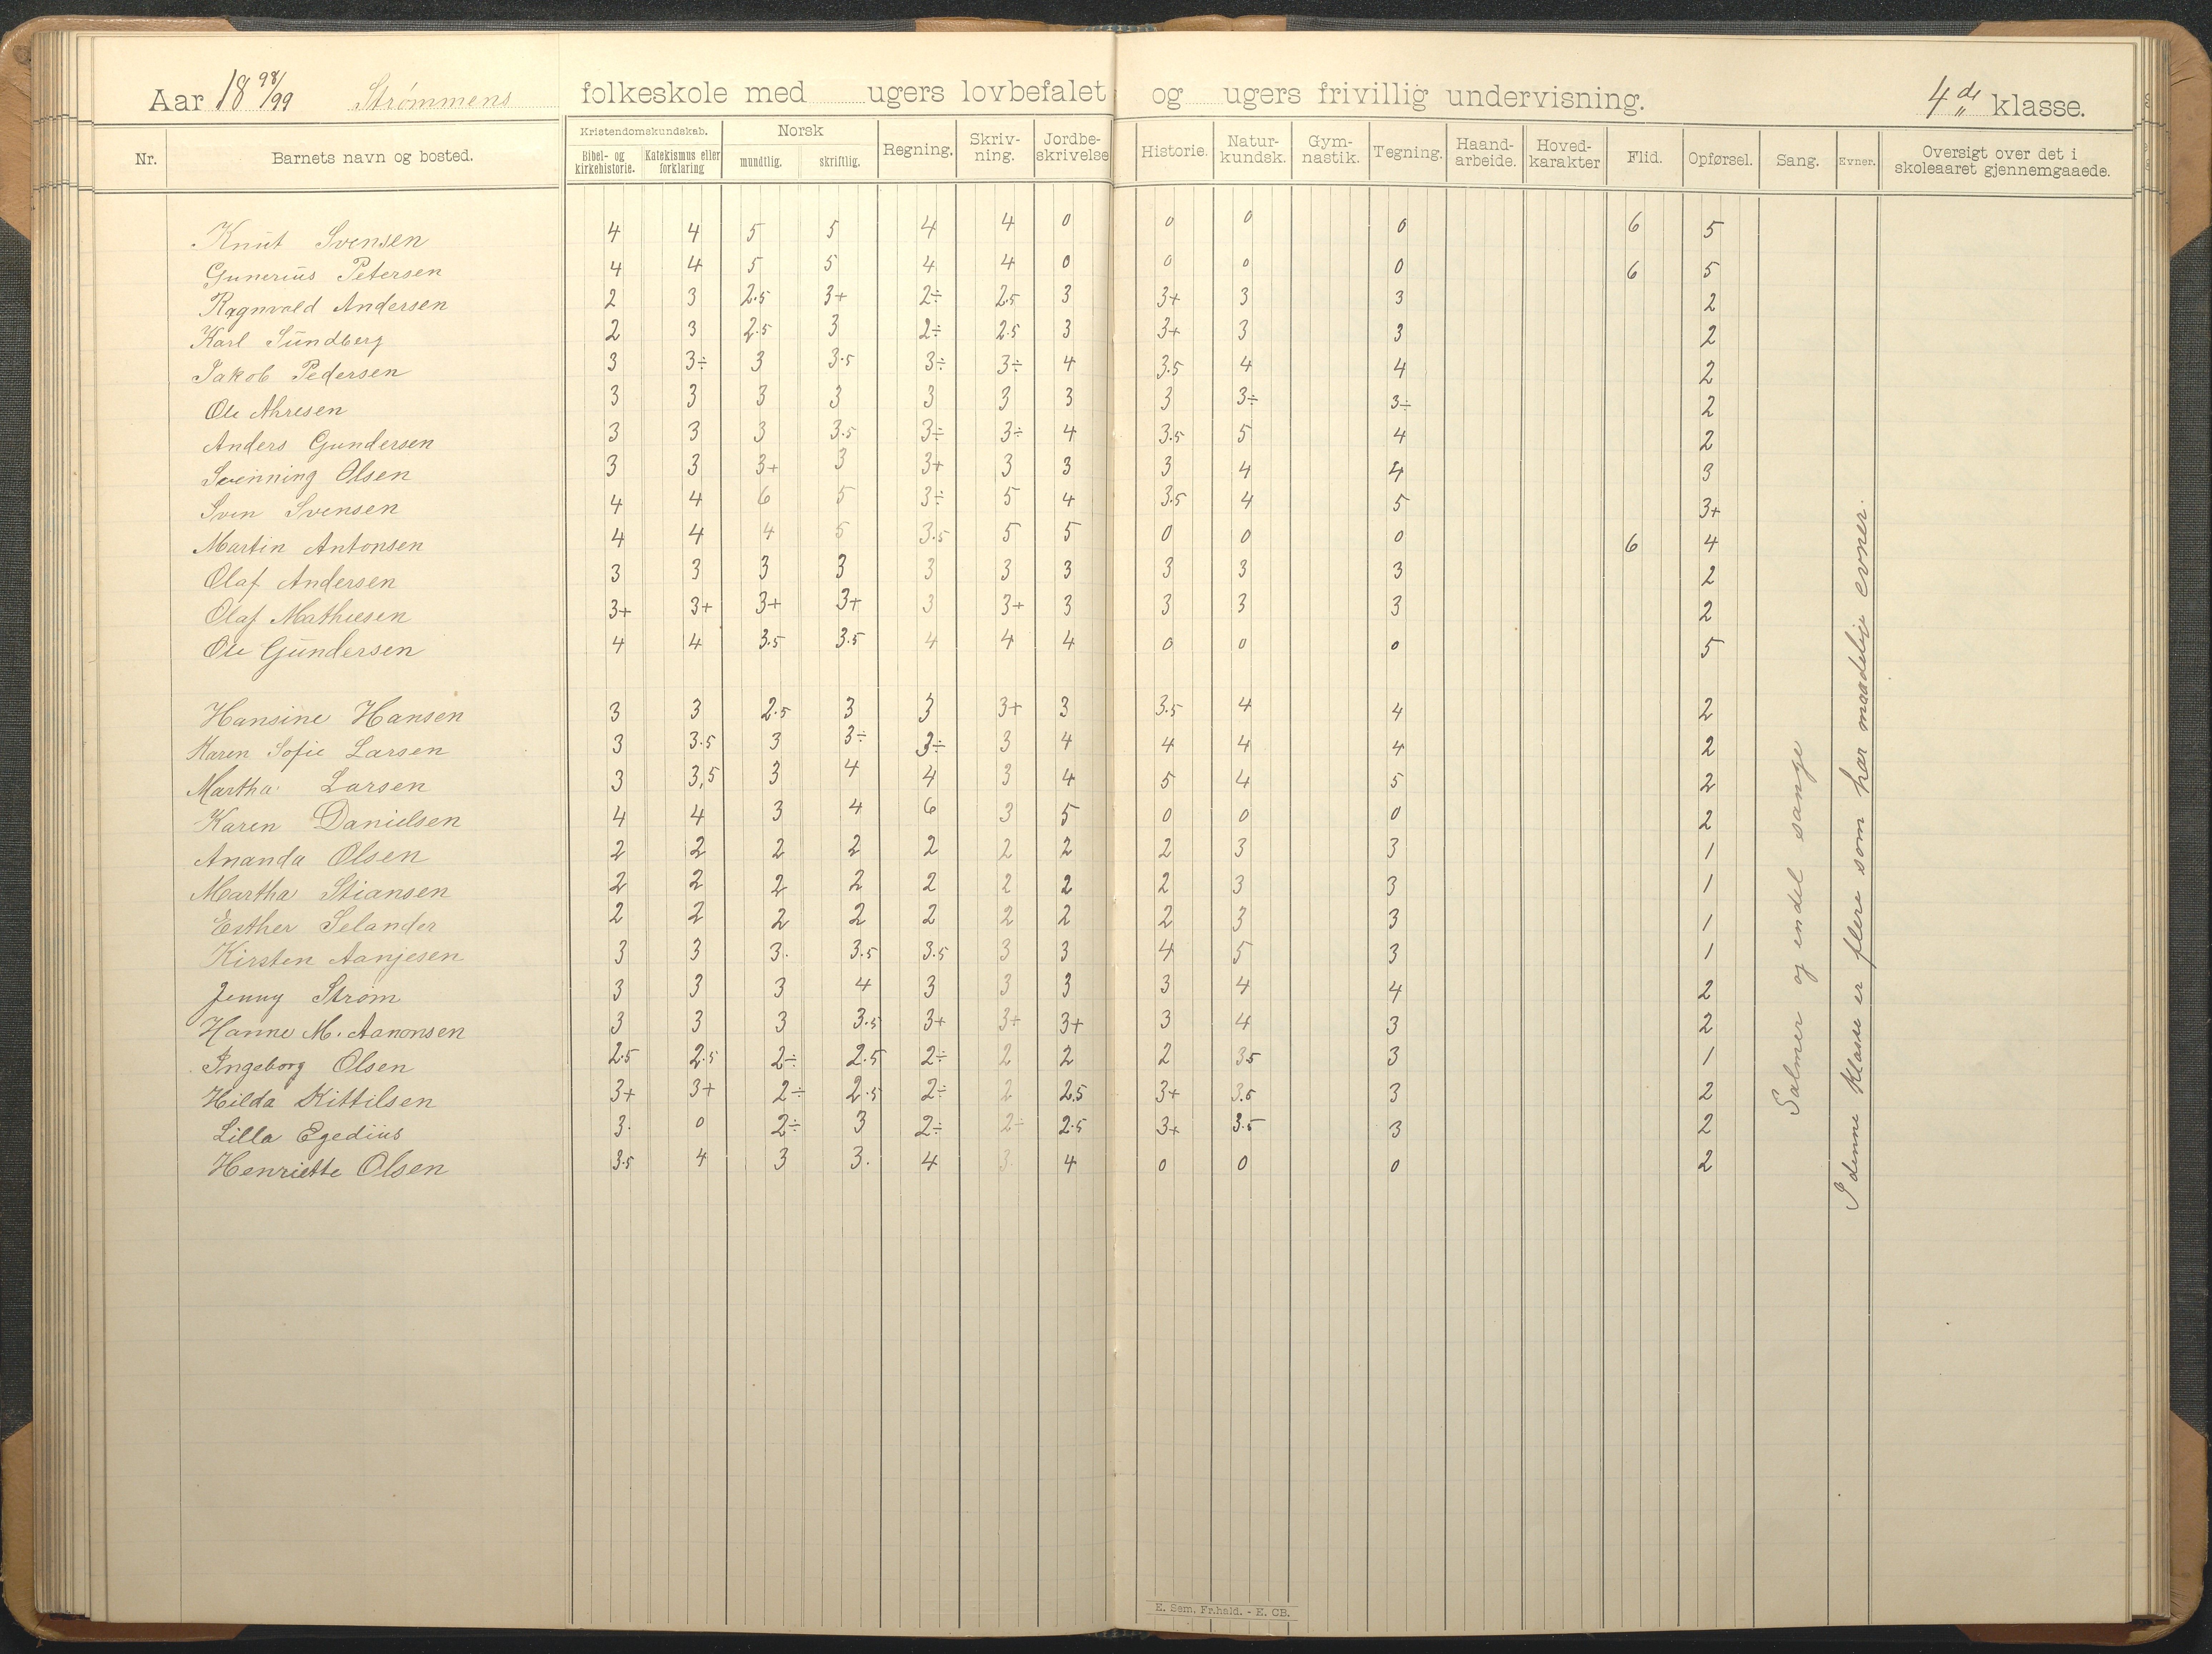 Aar 18 98/99 Strømmens folkeskole med ugers lovbefalet og ugers frivillig undervisning. 4de klasse.
Nr. Barnets navn og bosted. Kristendomskundskab. Bibel- og kirkehistorie. Katekismus eller forklaring Norsk mundtlig. skriftlig. Regning. Skriv-ning. Jordbe-skrivelse Historie. Natur-kundsk. Gym-nastik. Tegning. Haand-arbeide. Hoved-karakter Flid. Opførsel. Sang. Evner. Oversigt over det i skoleaaret gjennemgaaede.
Knut Svensen 4 4 5 5 4 4 0 0 0 0 6 5
Gunerius Petersen 4 4 5 5 4 4 0 0 0 0 6 5
Ragnvald Andersen 2 3 2.5 3+ 2÷ 2.5 3 3+ 3 3 2
Karl Sundberg 2 3 2.5 3 2÷ 2.5 3 3+ 3 3 2
Jakob Pedersen 3 3÷ 3 3.5 3÷ 3÷ 4 3.5 4 4 2
Ole 3 3 3 3 3 3 3 3 3÷ 3÷ 2
Anders Gundersen 3 3 3 3.5 3÷ 3÷ 4 3.5 5 4 2
Svenning Olsen 3 3 3+ 3 3+ 3 3 3 4 4 3
Sven Svensen 4 4 6 5 3÷ 5 4 3.5 4 5 3+
Martin Antonsen 4 4 4 5 3.5 5 5 0 0 0 6 4
Olaf Andersen 3 3 3 3 3 3 3 3 3 3 2
Olaf Mathiesen 3+ 3+ 3+ 3+ 3 3+ 3 3 3 3 2
Ole Gundersen 4 4 3.5 3.5 4 4 4 0 0 0 5
Hansine Hansen 3 3 2.5 3 3 3+ 3 3.5 4 4 2
Karen Sofie Larsen 3 3.5 3 3÷ 3÷ 3 4 4 4 4 2
Martha Larsen 3 3,5 3 4 4 3 4 5 4 5 2
Karen Danielsen 4 4 3 4 6 3 5 0 0 0 2
Ananda Olsen 2 2 2 2 2 2 2 2 3 3 1
Martha Stiansen 2 2 2 2 2 2 2 2 3 3 1
Esther Selander 2 2 2 2 2 2 2 2 3 3 1
Kirsten Aanjesen 3 3 3. 3.5 3.5 3 3 4 5 3 1
Jenny Strøm 3 3 3 4 3 3 3 3 4 4 2
Hanne M. Aanonsen 3 3 3 3.5 3+ 3+ 3+ 3 4 3 2
Ingeborg Olsen 2.5 2.5 2÷ 2.5 2÷ 2 2 2 3.5 3 1
Hilda Kittilsen 3+ 3+ 2÷ 2.5 2÷ 2 2.5 3+ 3.5 3 2
Lilla Egedius 3. 0 2÷ 3 2÷ 2÷ 2.5 3+ 3.5 3 2
Henriette Olsen 3.5 4 3 3. 4 3 4 0 0 0 2
Salmer og endel sange
I denne klasse er flere som har maadelige evner.
E. Sem, Fr.hald. - E. CB.